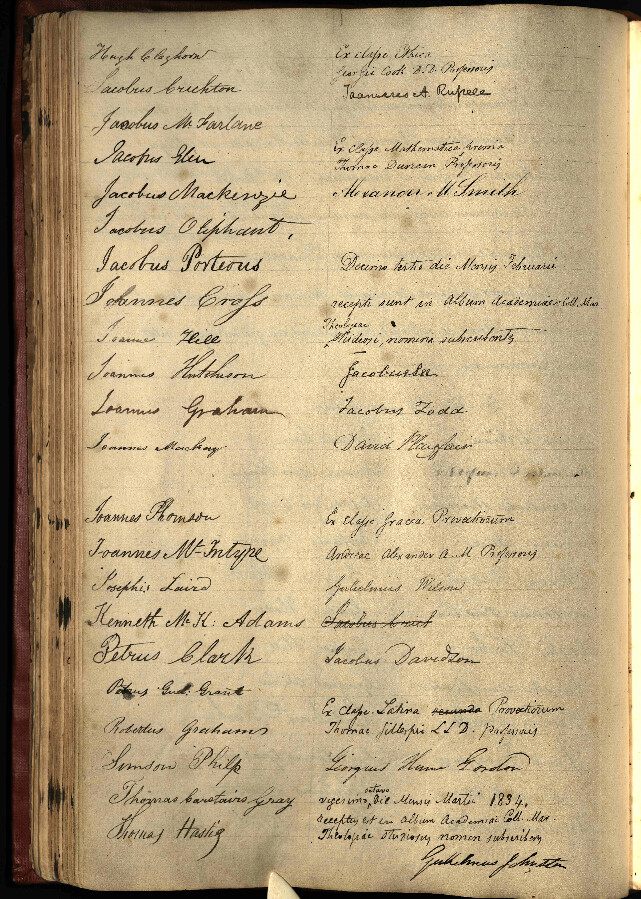 Hugh Cleghorn
Jacobus Crichton
Jacobus McFarlane
Jacobus Glen
Jacobus Mackenzie
Jacobus Oliphant.
Jacobus Porteous
Johannes Cross
Joannes Hill
Joannes Hutchison
Joannes Graham
Joannes Mackay
Joannes Thomson
Joannes McIntype
Josephus Laird
Kenneth McK: Adams
Petrus Clark
Petrus Gul: Grant
Robertus Graham
Simson Philp
Thomas Carstairs Gray
Thomas Hastig
Ex classe Ethica
Georgii Cook D.D. Professoris
A. Rupele
Ex Classe Mathematica prima
Thomae Duncan Professoris
M Smith
Decimo tertio die Mensis Februarii
recepti sunt in Album Academiae Coll. Mar
Theologiae
Studiosi, nomina subscribentes
Jacobus
Jacobus Todd
David Playfair
Ex classe Graeca Provectiorum
Andreae Alexander A. M Professoris
Gulielmus Wilson
Jacobus
Jacobus Davidson
Ex classe Latina secunda Provectiorum
Thomae Gillespie LLD. professoris
Georgius Hume Gordon
octavo
vigesimo, die Mensis Martii 1834,
receptus est in Album Academiae Coll. Mar.
Theologiae studiosus nomen subscribens
Gulielmus Johnston